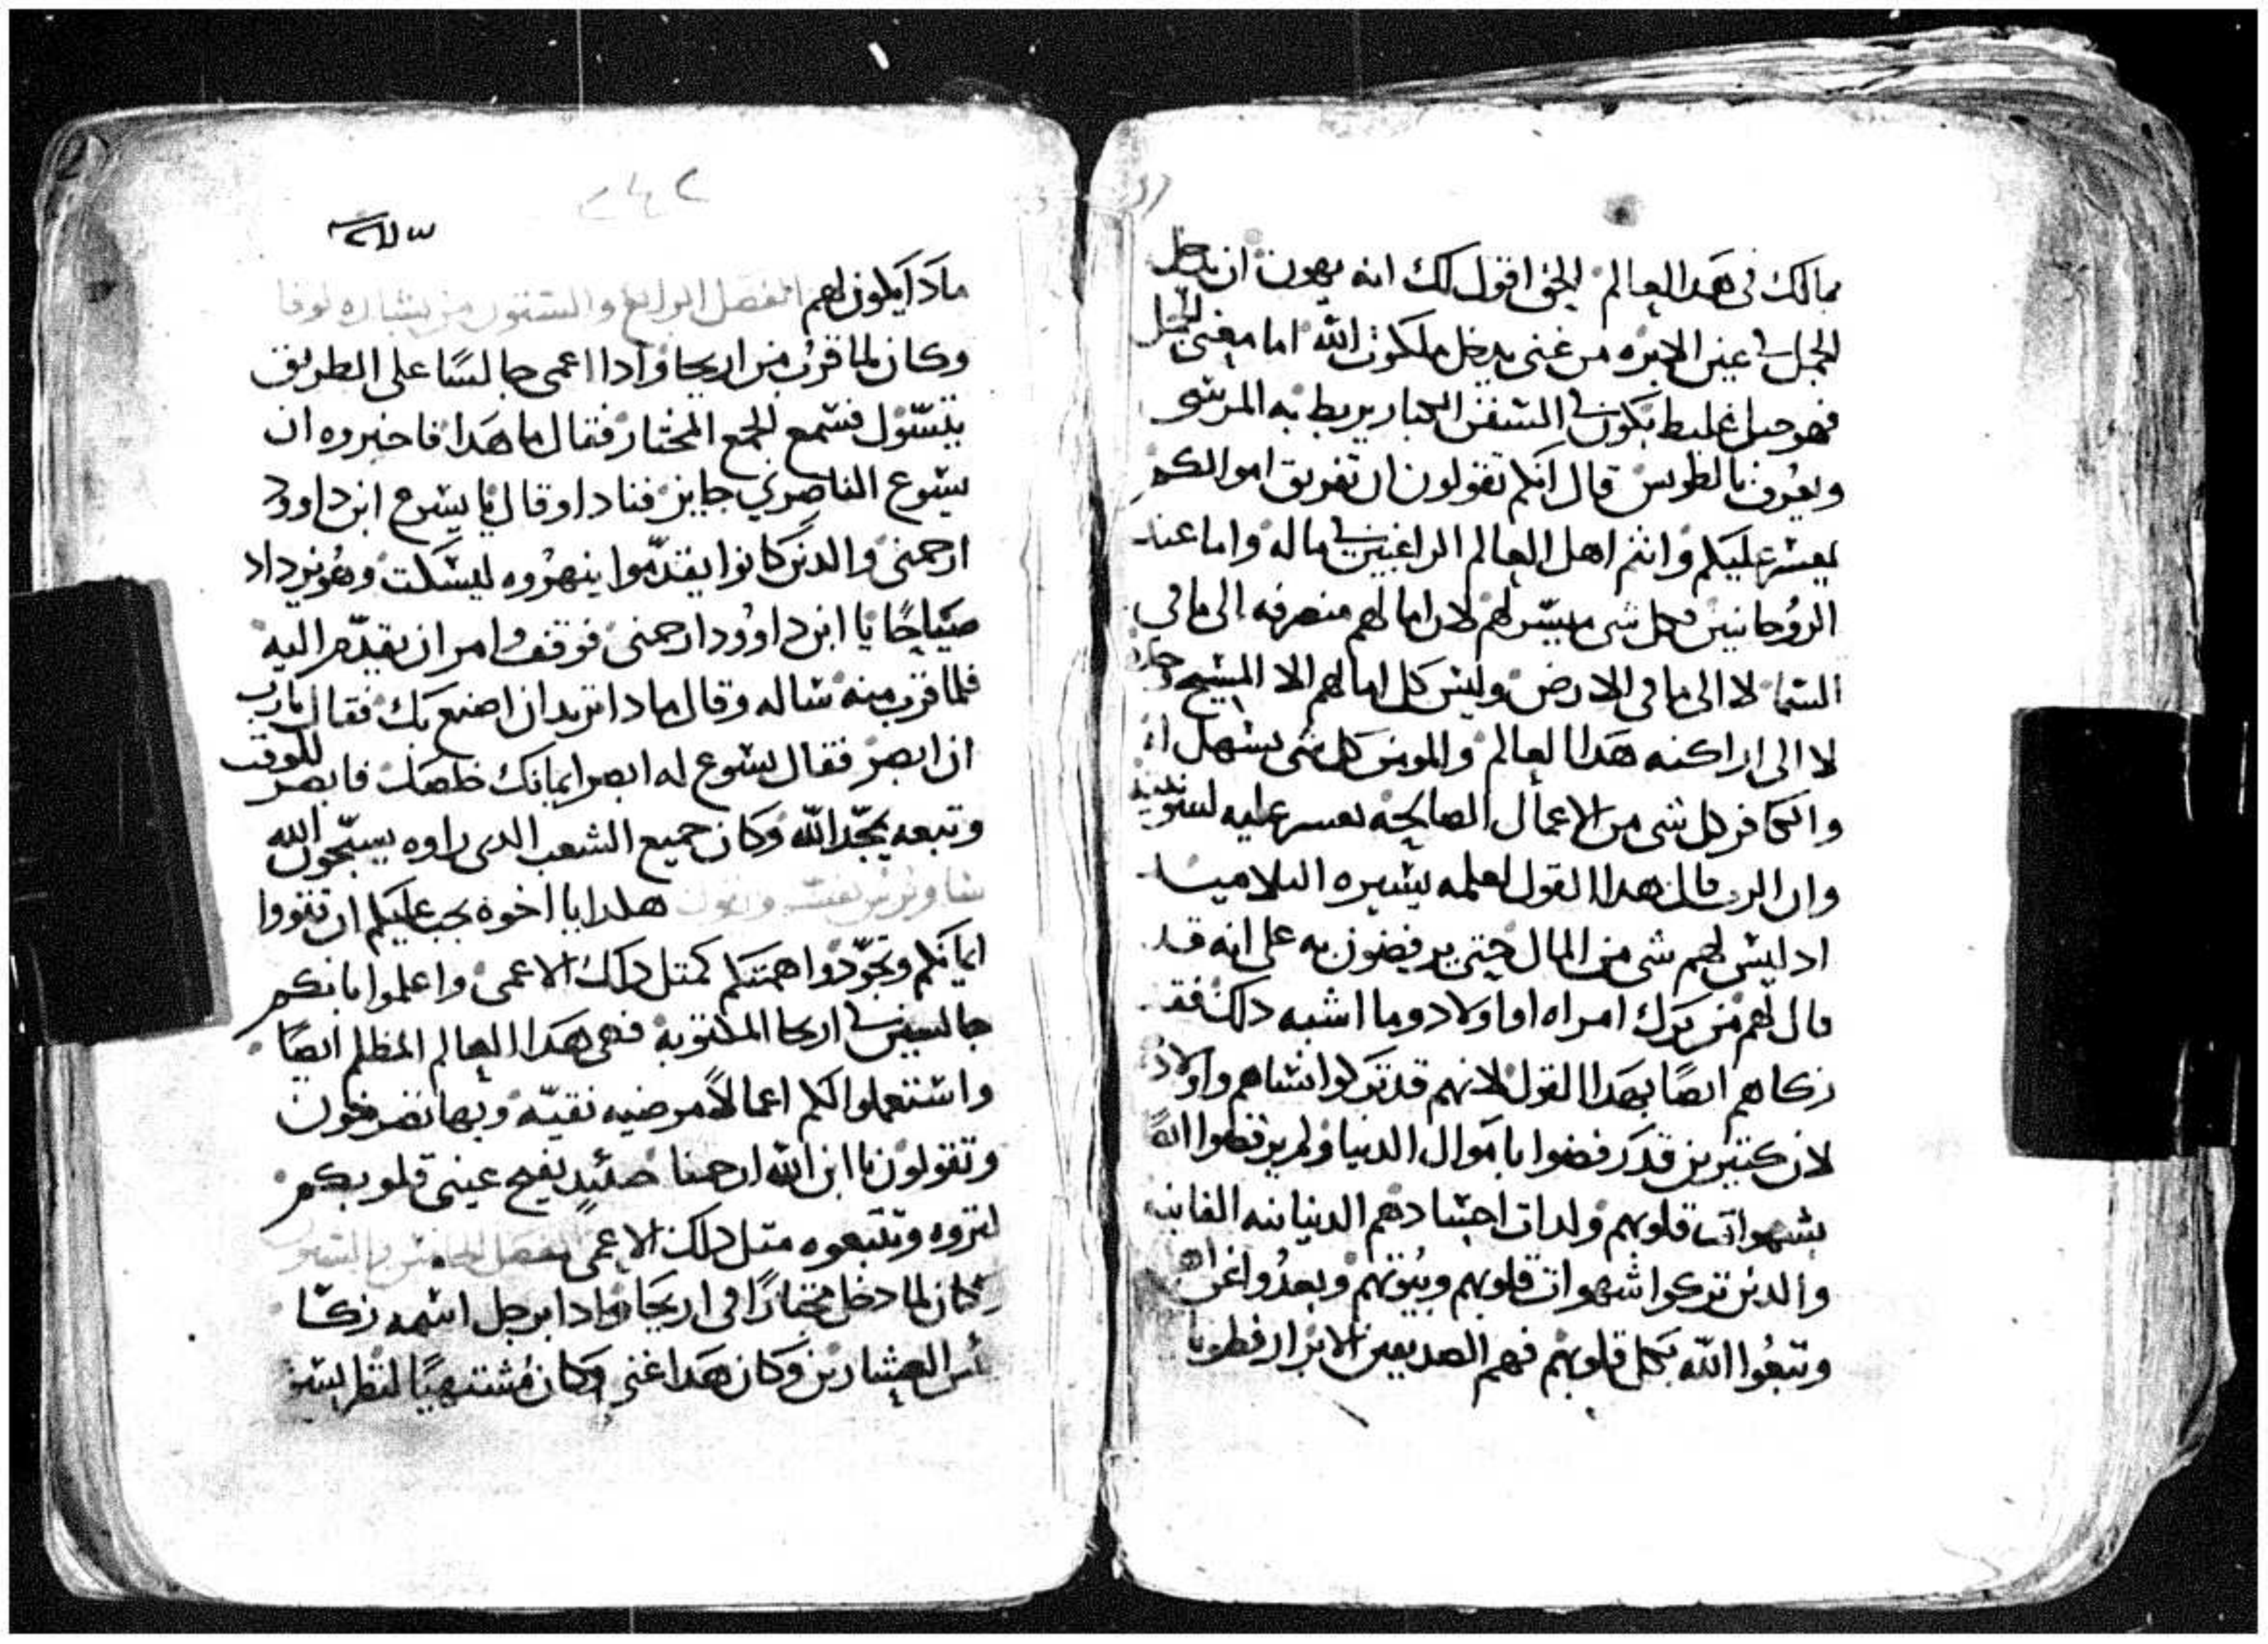 بمالك في هدا العالم الحق اقول لك انه يهون ان يدخل
الجمل في عين الابره من غني يدخل ملكوت الله اما معني الجمل
فهو حبل غليط يكون في السفن الكبار يربط به المرسي
ويعرف بالطوبس قال انكم تقولون ان تفريق اموالكم
يعسر عليكم وانتم اهل العالم الراغبين في ماله واما عند
الروحانيين فكل شي ميسر لهم لان امالهم منصرفه الى ما في
السما لا الى ما في الارض وليس كل امالهم الا المسيح
لا الى اراكنه هدا العالم والمومن كل شي يسهل
والكافر كل شي من الاعمال الصالحه يعسر عليه
وان الرب قال هدا القول لعلمه بسيره التلاميد
اد ليس لهم شي من المال حتي يرفضون به على انه قد
قال لهم من ترك امراه او اولاد وما اشبه دلك فقد
زكاهم ايضًا بهدا القول لانهم قد تركوا نساهم واولاد
لان كتيرين قد رفضوا باموال الدنيا ولم يرفضوا
بشهوات قلوبهم ولدات اجسادهم الدنيانيه الفانيه
والدين تركوا شهوات قلوبهم وبيوتهم وبعدوا
وتبعوا الله بكل قلوبهم فهم الصديقين الابرار فطوبا
٢٤٢
مادا يكون لهم الفصل الرابع والستون من بشاره لوقا
وكان لما قرب من اريحا وادا اعمى جالسًا على الطريق
يتسّول فسمع الجمع المختار فقال ما هدا فاخبروه ان
يسوع الناصري جايز فنادا وقال يا يسوع ابن داوود
ارحمني والدين كانوا يقدّموا ينهروه ليسكت وهو يزداد
صياحًا يا ابن داوود ارحمني فوقف وامر ان يقدّم اليه
فلما قرب منه ساله وقال مادا تريد ان اصنع بك فقال يا رب
ان ابصر فقال يسوع له ابصر ايمانك خلصك فابصر للوقت
وتبعه يمجّد الله وكان جميع الشعب الدي راوه يسبّحون الله
هلدا يا اخوة يجب عليكم ان تقووا
ايمانكم وتجوّدوا همتكم كمتل دلك الاعمى واعلموا بانكم
جالسين في اريحا المكتوبه فهي هدا العالم المظلم ايضًا
واستعملوا لكم اعمالًا مرضيه نقيّه وبها تضرعون
وتقولون يا ابن الله ارحمنا حينيدٍ يفتح عيني قلوبكم
لتروه وتتبعوه متل دلك الاعمى الفصل الخامس والستون
وكان لما دخل مجتازًا في اريحا وادا برجل اسمه زكّا
ريس العشارين وكان هدا غني وكان مشتهيًا لنظر يسو